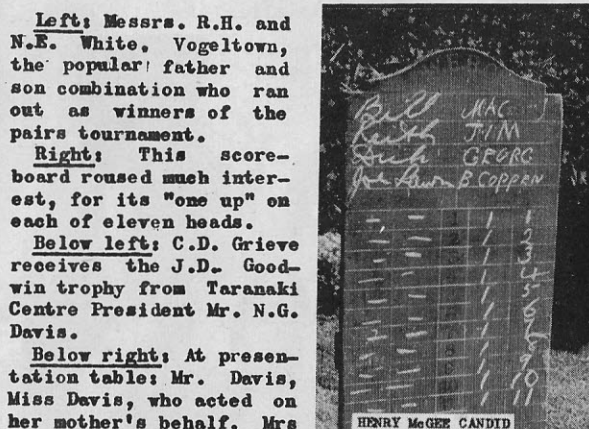 Left: Messrs. R.H. and
N.E. White, Vogeltown,
the popular father and
son combination who ran
out as winners of the
pairs tournament.
Right: This score-
board roused much inter-
est, for its "one up" on
each of eleven heads.
Below left: C.D. Grieve
receives the J.D. Good-
win trophy from Taranaki
Centre President Mr. N.G.
Davis.
Below right: At presen-
tation table: Mr. Davis,
Miss Davis, who acted on
her mother's behalf. Mrs
Bill MAC
Keith JIM
Dick GEORG
Joe B COPPEN
- - 1 / 1
- - 2 / 2
- - 3 / 3
- - 4 / 4
- - 5 / 5
- - 6 / 6
- - 7 / 7
- - 8 / 8
- - 9 / 9
- - 10 / 10
- - 11 / 11
HENRY McGEE CANDID